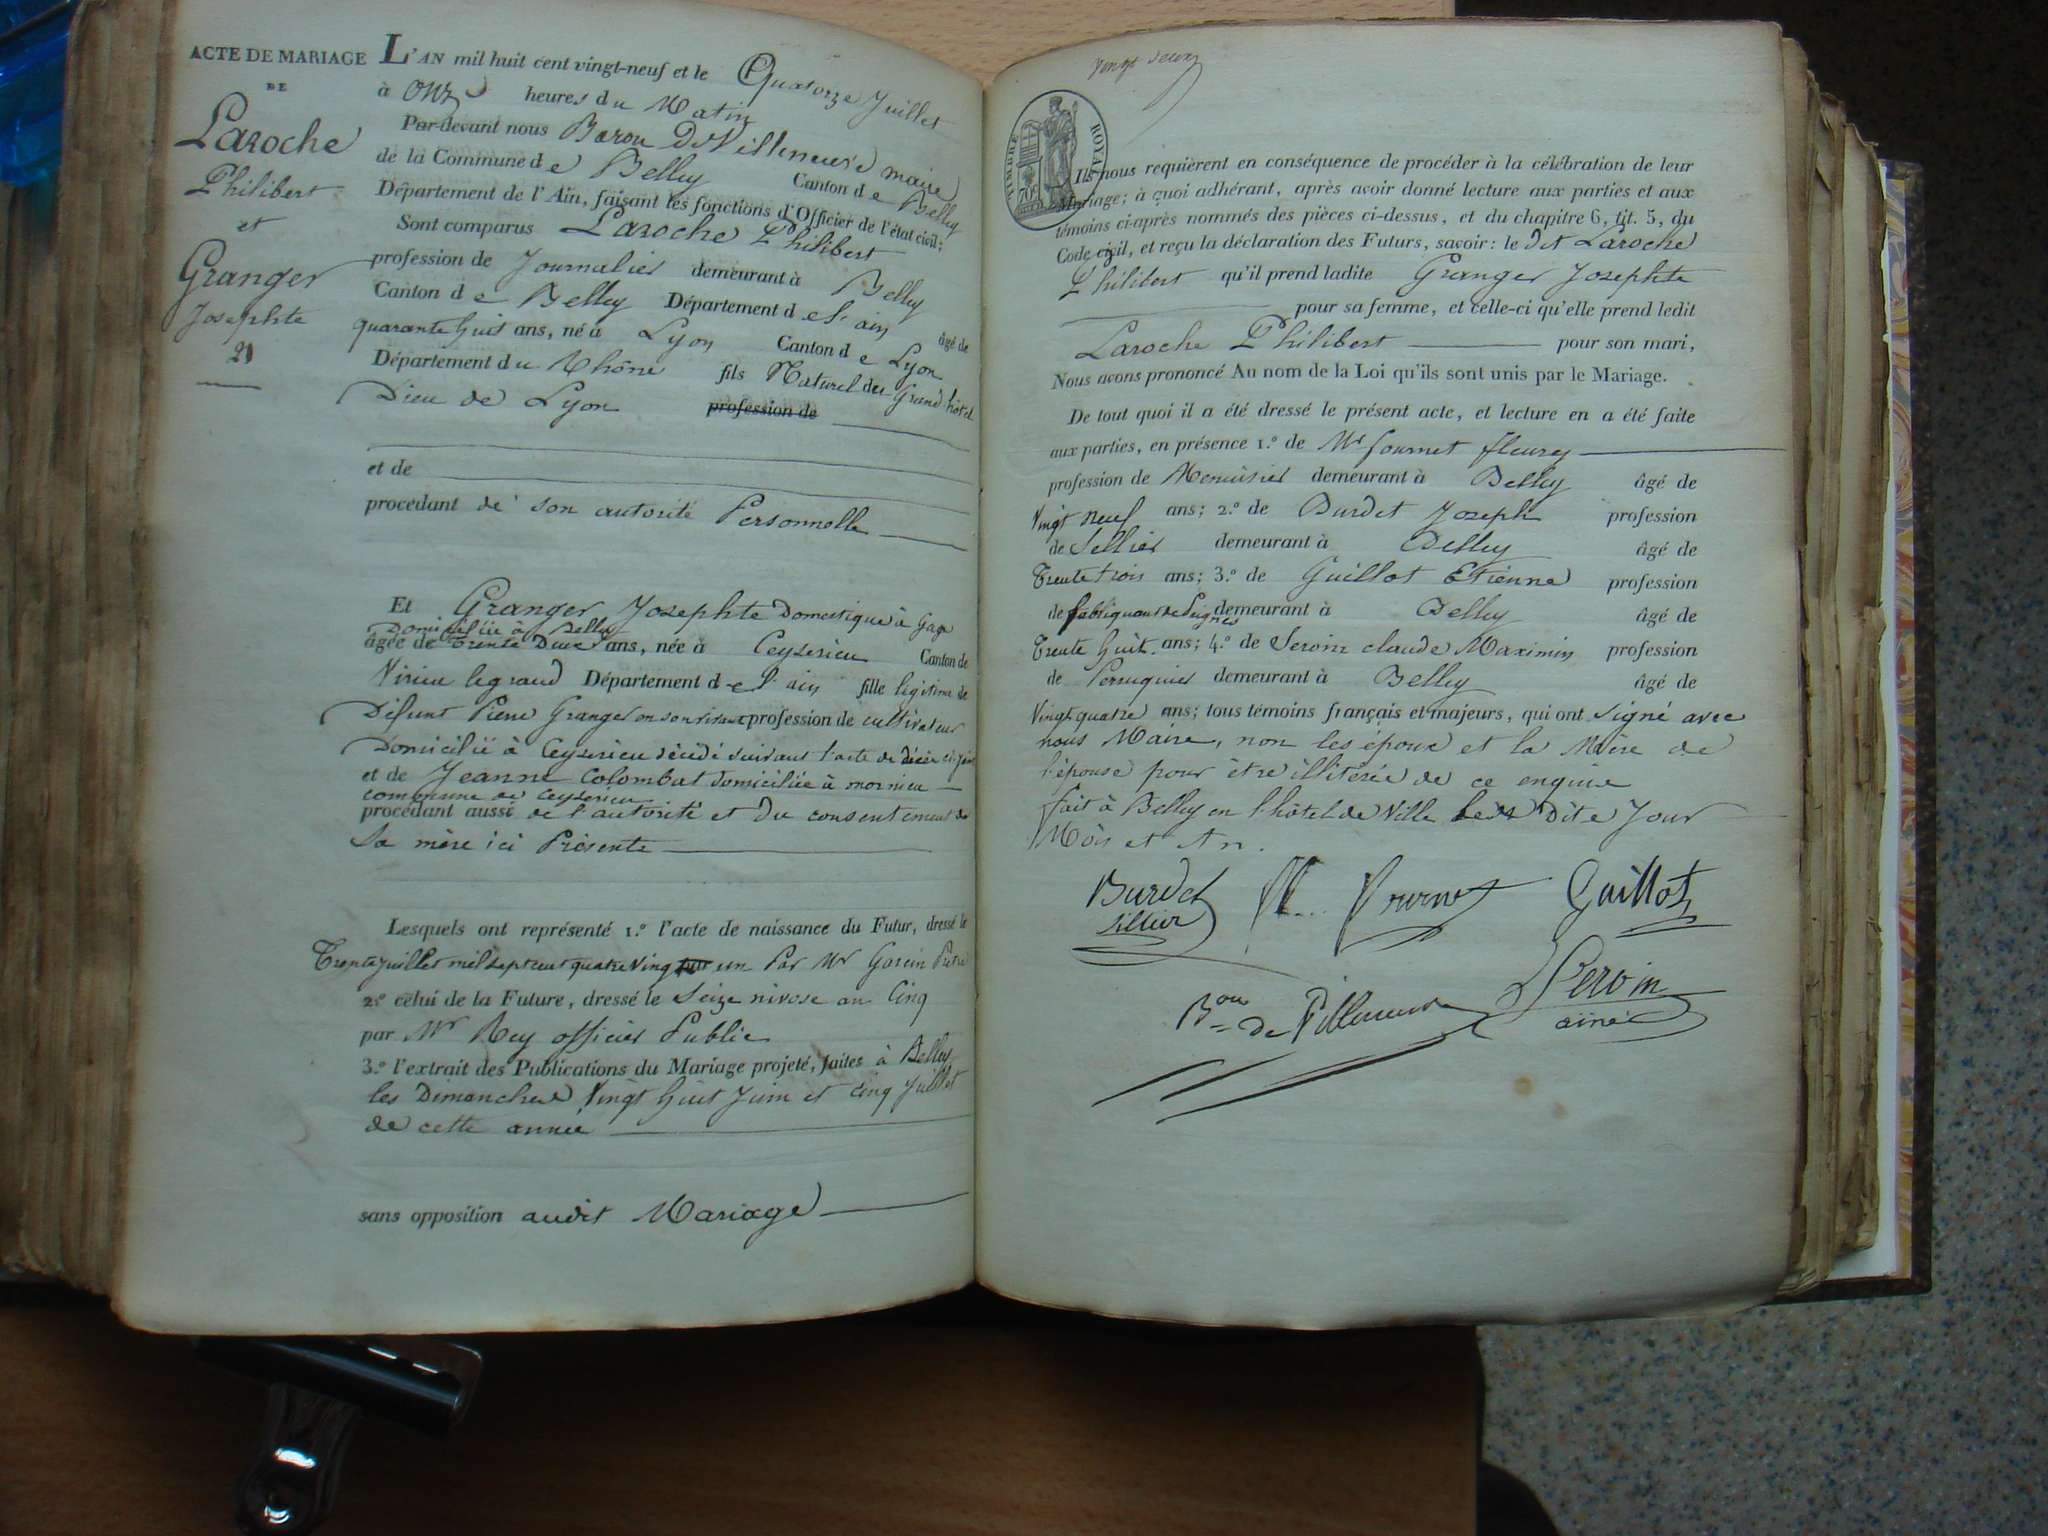 ACTE DE MARIAGE
DE
Laroche
Philibert
et
Granger
Josephte
21
L'AN mil huit cent vingt-neuf et le Quatorze Juillet
à onze heures du Matin
Par-devant nous Baron De Villeneuve maire
de la Commune de Belley Canton de Belley
Département de l'Ain, faisant les fonctions d'Officier de l'état civil;
Sont comparus Laroche Philibert
profession de Journalier demeurant à Belley
Canton de Belley Département de l'ain âgé de
quarante huit ans, né à Lyon Canton de Lyon
Département du Rhône fils Naturel du Grand hôtel
Dieu de Lyon profession de
et de
procédant de son autorité Personnelle
Et Granger Josephte Domestique à Gage
Domiciliée à Belley
âgée de Trente Deux ans, née à Ceyserieu Canton de
Virieu le grand Département de l'ain fille legitime de
Défunt Pierre Granger en son vivant profession de cultivateur
Domicilié à Ceyserieu décédé suivant l'acte de décès ci-joint
et de Jeanne Colombat Domiciliée à mornieu
commune de Ceyserieu
procédant aussi de l'autorité et Du consentement de
Sa mère ici Présente
Lesquels ont représenté 1.º l'acte de naissance du Futur, dressé le
Trente juillet mil sept cent quatre vingt un Par Mr Garcin Prêtre
2.º celui de la Future, dressé le Seize nivose an Cinq
par Mr Rey officier Public
3.º l'extrait des Publications du Mariage projeté, faites à Belley
les Dimanches Vingt huit Juin et cinq Juillet
de cette année
sans opposition audit Mariage
vingt deux
TIMBRE ROYAL
Ils nous requièrent en conséquence de procéder à la célébration de leur
Mariage; à quoi adhérant, après avoir donné lecture aux parties et aux
témoins ci-après nommés des pièces ci-dessus, et du chapitre 6, tit. 5, du
Code civil, et reçu la déclaration des Futurs, savoir: le dit Laroche
Philibert qu'il prend ladite Granger Josephte
pour sa femme, et celle-ci qu'elle prend ledit
Laroche Philibert pour son mari,
Nous avons prononcé Au nom de la Loi qu'ils sont unis par le Mariage.
De tout quoi il a été dressé le présent acte, et lecture en a été faite
aux parties, en présence 1.º de Mr fournet fleury
profession de Menuisier demeurant à Belley âgé de
Vingt neuf ans; 2.º de Burdet Joseph profession
de Sellier demeurant à Belley âgé de
Trente trois ans; 3.º de Guillot Etienne profession
de fabriquant de Peignes demeurant à Belley âgé de
Trente huit ans; 4.º de Servin claude Maximin profession
de Perruquier demeurant à Belley âgé de
Vingt quatre ans; tous témoins français et majeurs, qui ont signé avec
nous Maire, non les époux et la Mère de
l'épouse pour être illitérée de ce enquise
fait à Belley en l'hôtel de Ville les Dite Jour
Mois et An.
Burdet
sillier
Fournet
Guillot
Bon de Villeneuve
Servin
ainé